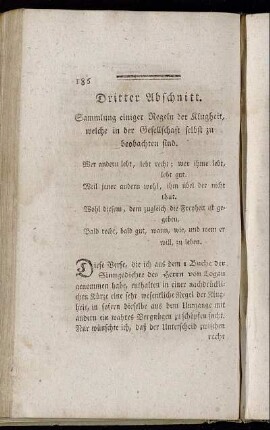 186
Dritter Abschnitt.
Sammlung einiger Regeln der Klugheit,
welche in der Gesellschaft selbst zu
beobachten sind.
Wer andern lebt, lebt recht; wer ihme lebt,
lebt gut.
Weil jener andern wohl, ihm übel der nicht
that.
Wohl diesem, dem zugleich die Freyheit ist ge-
geben,
Bald recht, bald gut, wann, wie, und wem er
will, zu leben.
Diese Verse, die ich aus dem 1 Buche der
Sinngedichte des Herrn von Logau
genommen habe, enthalten in einer nachdrückli-
chen Kürze eine sehr wesentliche Regel der Klug-
heit, in sofern dieselbe aus dem Umgange mit
andern ein wahres Vergnügen zu schöpfen sucht.
Nur wünschte ich, daß der Unterscheid zwischen
recht